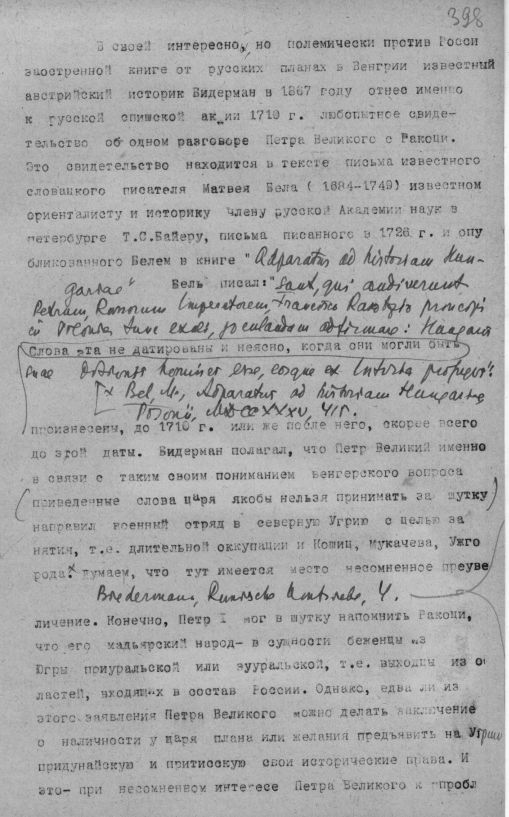 398
В своей интересно, но полемически против Росси
заостренной книге от русских планах в Венгрии известный
австрийский историк Бидерман в 1867 году отнес именно
к русской спишской акции 1710 г. любопытное свиде-
тельство об одном разговоре Петра Великого с Ракоци.
Это свидетельство находится в тексте письма известного
словацкого писателя Матвея Бела ( 1684-1749) известном
ориенталисту и историку члену русской Академии наук в
петербурге Т.С.Байеру, письма писанного в 1726 г. и опу
бликованного Белем в книге " Apparatus ad historiam Hun-
gariae" Бель писал: "Sunt, qui audiverunt
Petrum, Russorum Imperatorem, Francisco Principi
tunc exuli, joculandum adfirmare: Hungaros
Слова эта не датированы и неясно, когда они могли быть
suae homines esse, eosque ex profugos".
[x Bel, M., Apparatus ad historiam Hungariae
Posonii, MDCCXXXV, 415.
произнесены, до 1710 г. или же побле него, скорее всего
до этой даты. Бидерман полагал, что Петр Великий именно
в связи с таким своим пониманием венгерского вопроса
(приведенные слова царя якобы нельзя принимать за шутку)
направил военный отряд в северную Угрию с целью за
нятия, т.е. длительной оккупации и Кошиц, Мукачева, Ужго
рода.x Думаем, что тут имеется место несомненное преуве
Biedermann, Russische Umtriebe, 4.
личение. Конечно, Петр I мог в шутку напомнить Ракоци,
что его мадьярский народ- в сущности беженцы из
Югры приуральской или зууральской, т.е. выходцы из о
ластей, входящих в состав России. Однако, едва ли из
этого заявления Петра Великого можно делать заключение
о наличности у царя плана или желания предъявить на Угрию
придунайскую и притисскую свои исторические права. И
это- при несомненном интересе Петра Великого к пробл